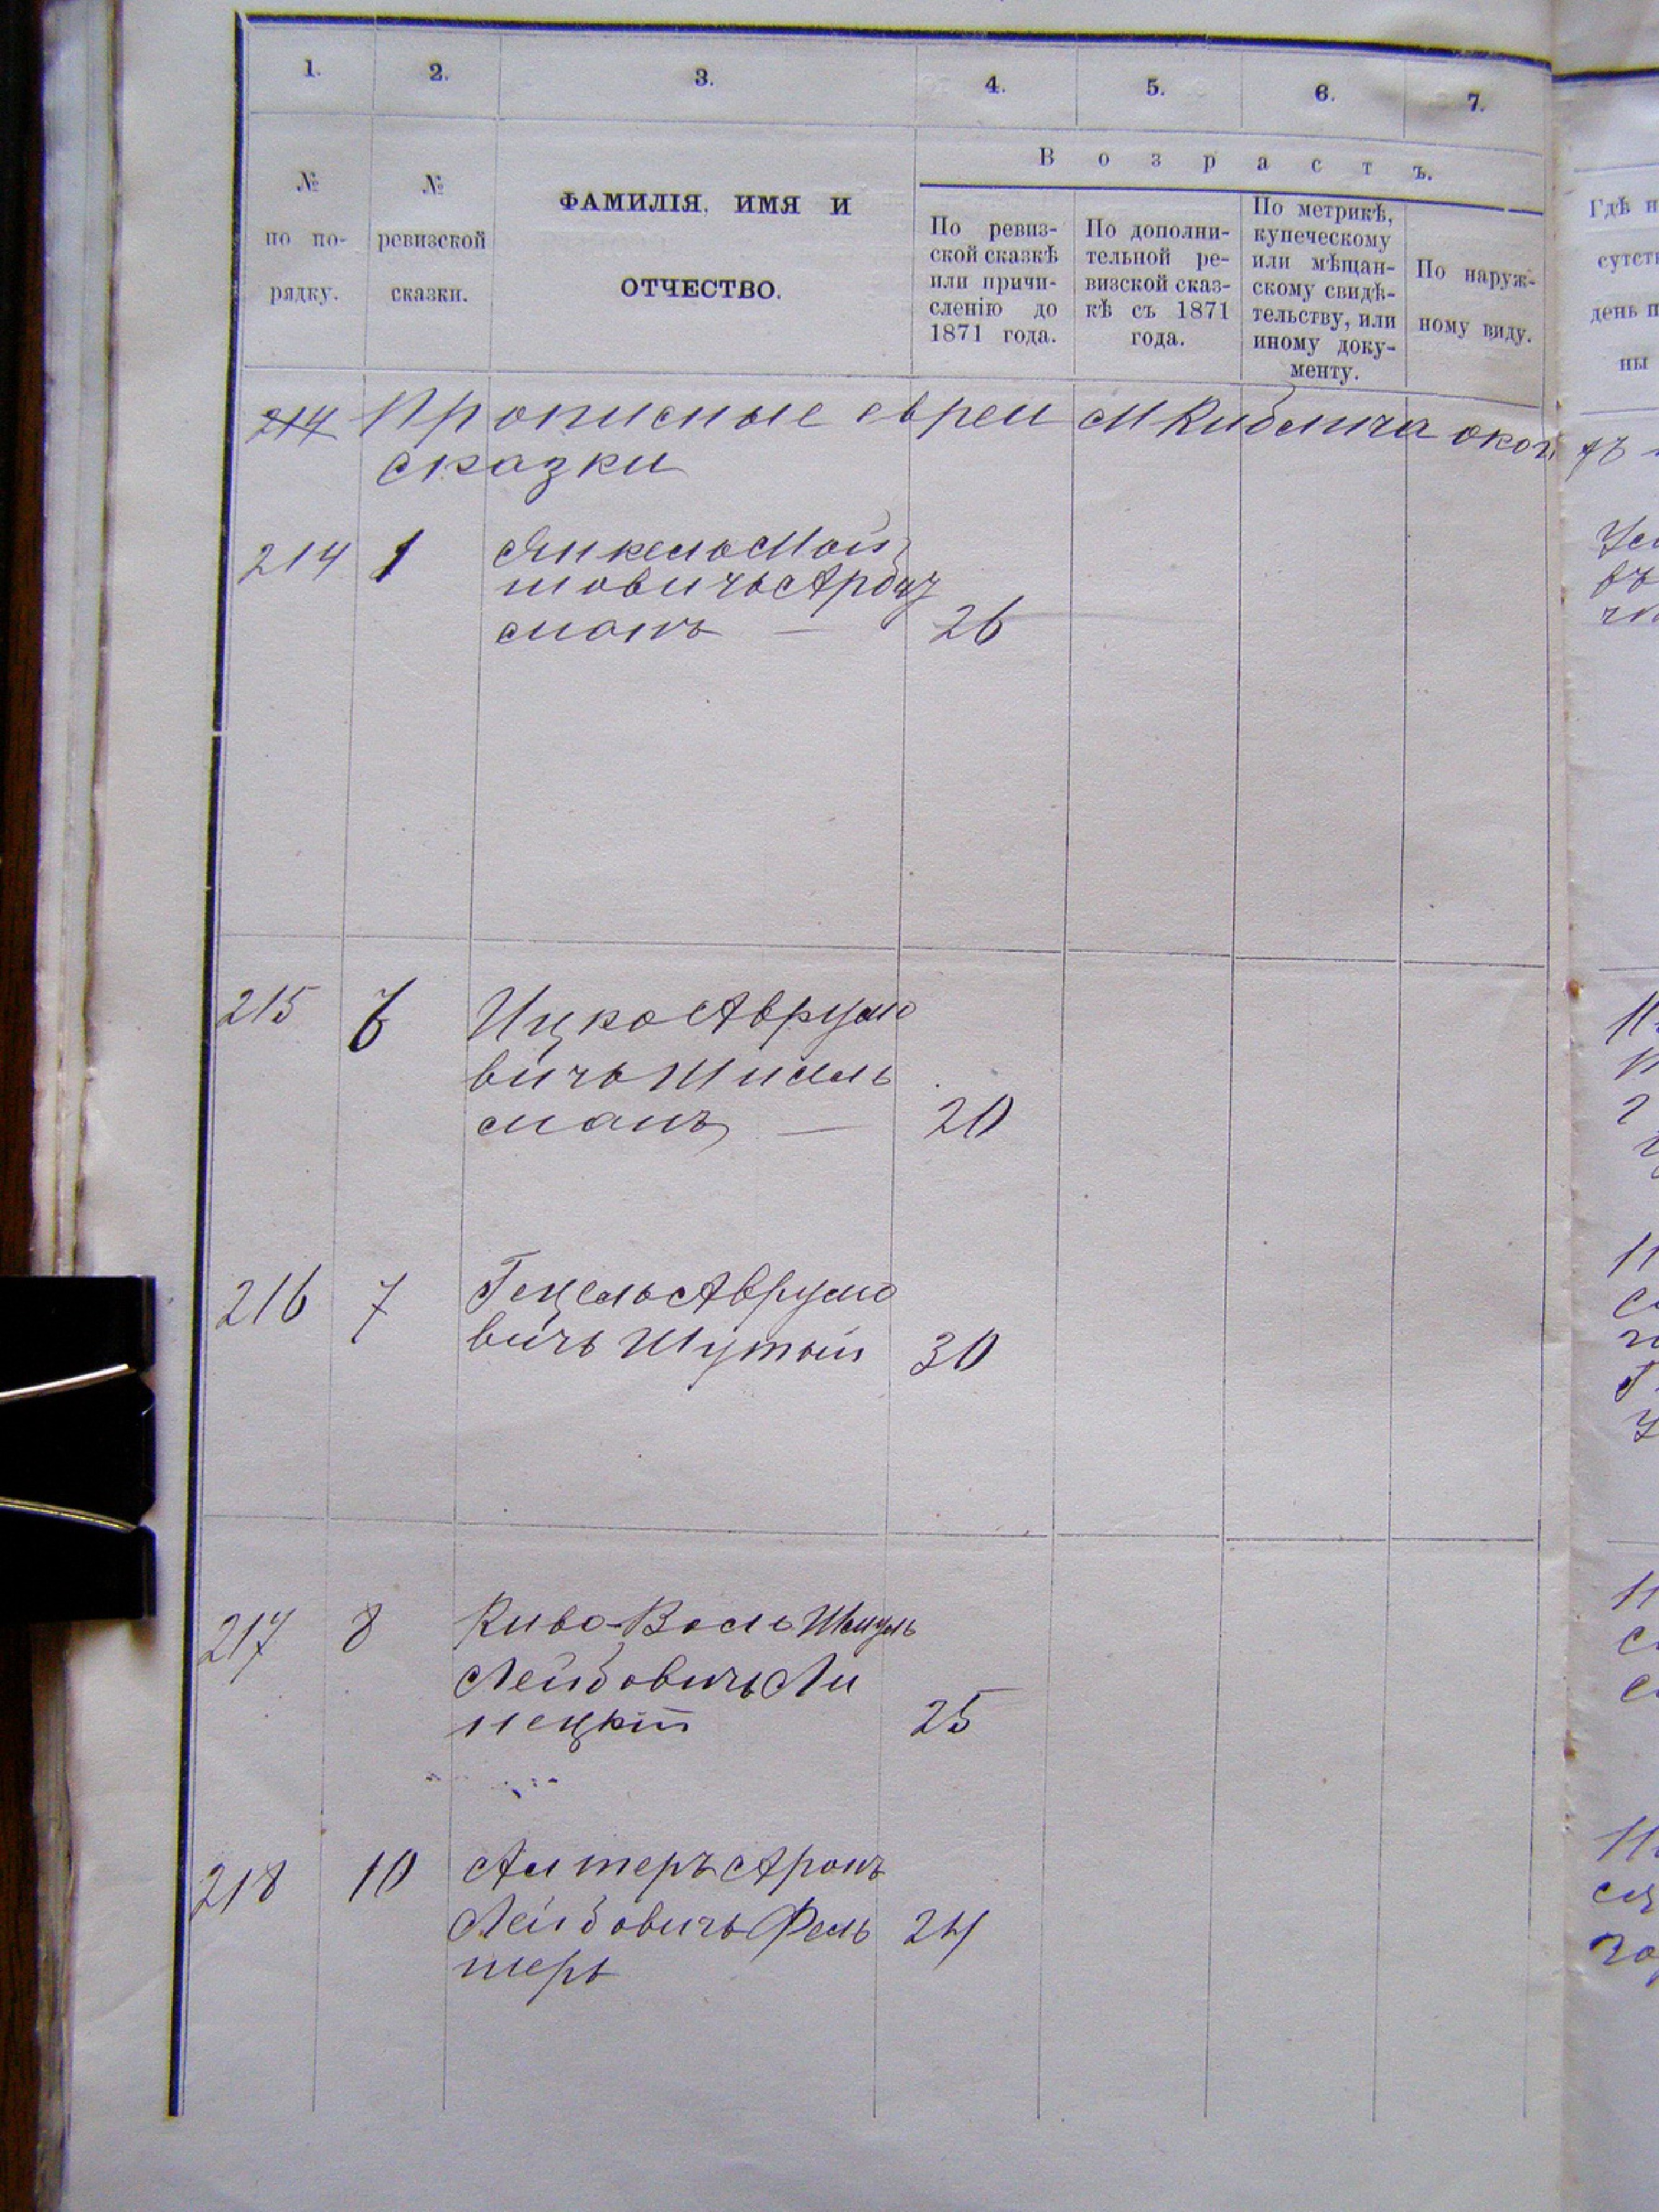 1. 2. 3. 4. 5. 6. 7.
В о з р а с т ъ.
№
по по-
рядку.
№
ревизской
сказки.
ФАМИЛІЯ, ИМЯ И
ОТЧЕСТВО.
По ревиз-
ской сказкѣ
или причи-
сленію до
1871 года.
По дополни-
тельной ре-
визской сказ-
кѣ съ 1871
года.
По метрикѣ,
купеческому
или мѣщан-
скому свидѣ-
тельству, или
иному доку-
менту.
По наруж-
ному виду.
Гдѣ н
сутст
день п
ны
214 Прописные евреи М Кублича
сказки
214 1 Янкель Мой
шовичъ
манъ — 26
215 6 Ицко Аврумо
вичъ Шмель
манъ — 20
216 7 Гецель Аврумо
вичъ Шутый 30
217 8 Киво-Волъ
Лейбовичъ Ли
нецкій 25
218 10 Алтеръ Аронъ
Лейбовичъ Фель 24
теръ